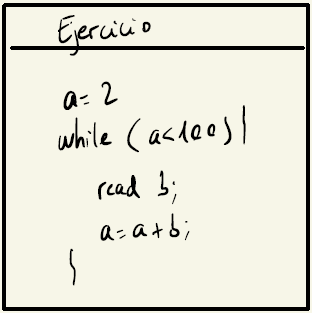 Ejercicio
a=2
while (a<100){
read b;
a=a+b;
}